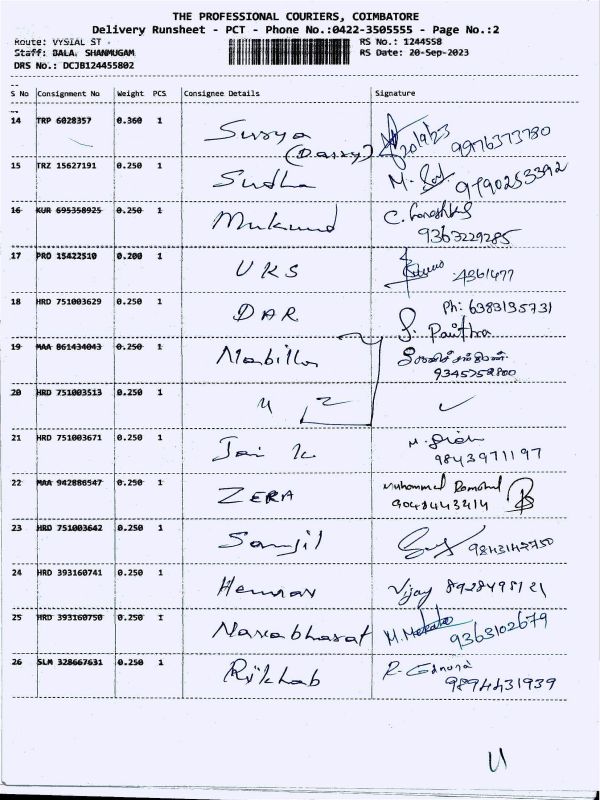 THE PROFESSIONAL COURIERS, COIMBATORE
Delivery Runsheet - PCT - Phone No.:0422-3505555 - Page No.:2
Route: VYSIAL ST - RS No.: 1244558
Staff: BALA. SHANMUGAM RS Date: 20-Sep-2023
DRS No.: DCJB124455802
S No Consignment No Weight PCS Consignee Details Signature
14 TRP 6028357 0.360 1 Surya 20/9/23 9976373780
(Dassy)
15 TRZ 15627191 0.250 1 Sudha M. 9790253392
16 KUR 695358925 0.250 1 Mukund C. Ganeshkj
9363229285
17 PRO 15422510 0.200 1 UKS 4361477
18 HRD 751003629 0.250 1 DAR Ph: 6383195731
19 MAA 861434043 0.250 1 Nabilla
9345752800
20 HRD 751003513 0.250 1 "
21 HRD 751003671 0.250 1 Jai K M.
9843971197
22 MAA 942886547 0.250 1 ZERA Muhammed
9048443414
23 HRD 751003642 0.250 1 Sanjil 9843142750
24 HRD 393160741 0.250 1 Hemrav Vijay 8928495121
25 HRD 393160750 0.250 1 Navabharat M. 9363102679
26 SLM 328667631 0.250 1 Rikhab R.
9894431939